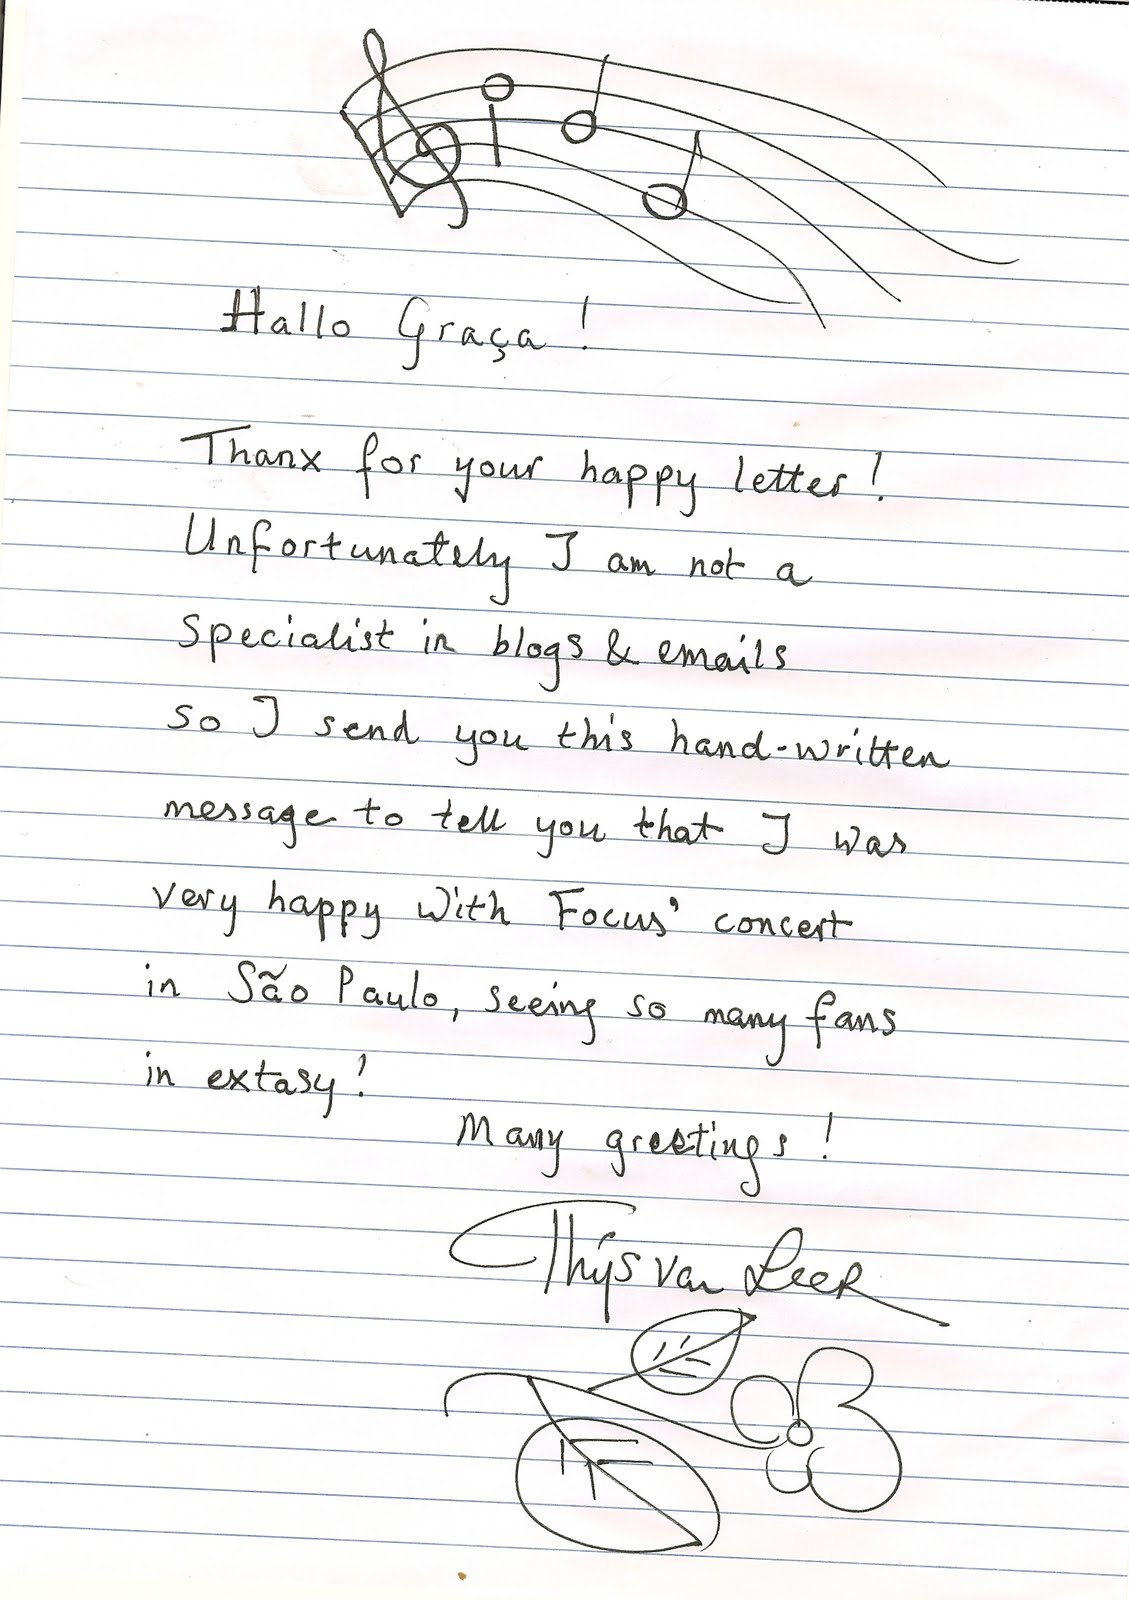 Hallo Graça!
Thanx for your happy letter!
Unfortunately I am not a
specialist in blogs & emails
so I send you this hand-written
message to tell you that I was
very happy with Focus' concert
in São Paulo, seeing so many fans
in extasy!
Many greetings!
Thijs van Leer